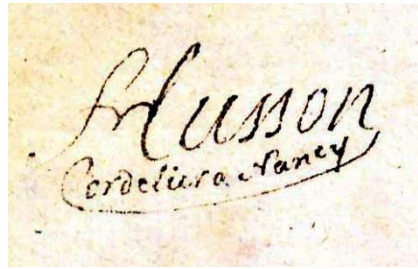 fr Husson
Cordelier a Nancy